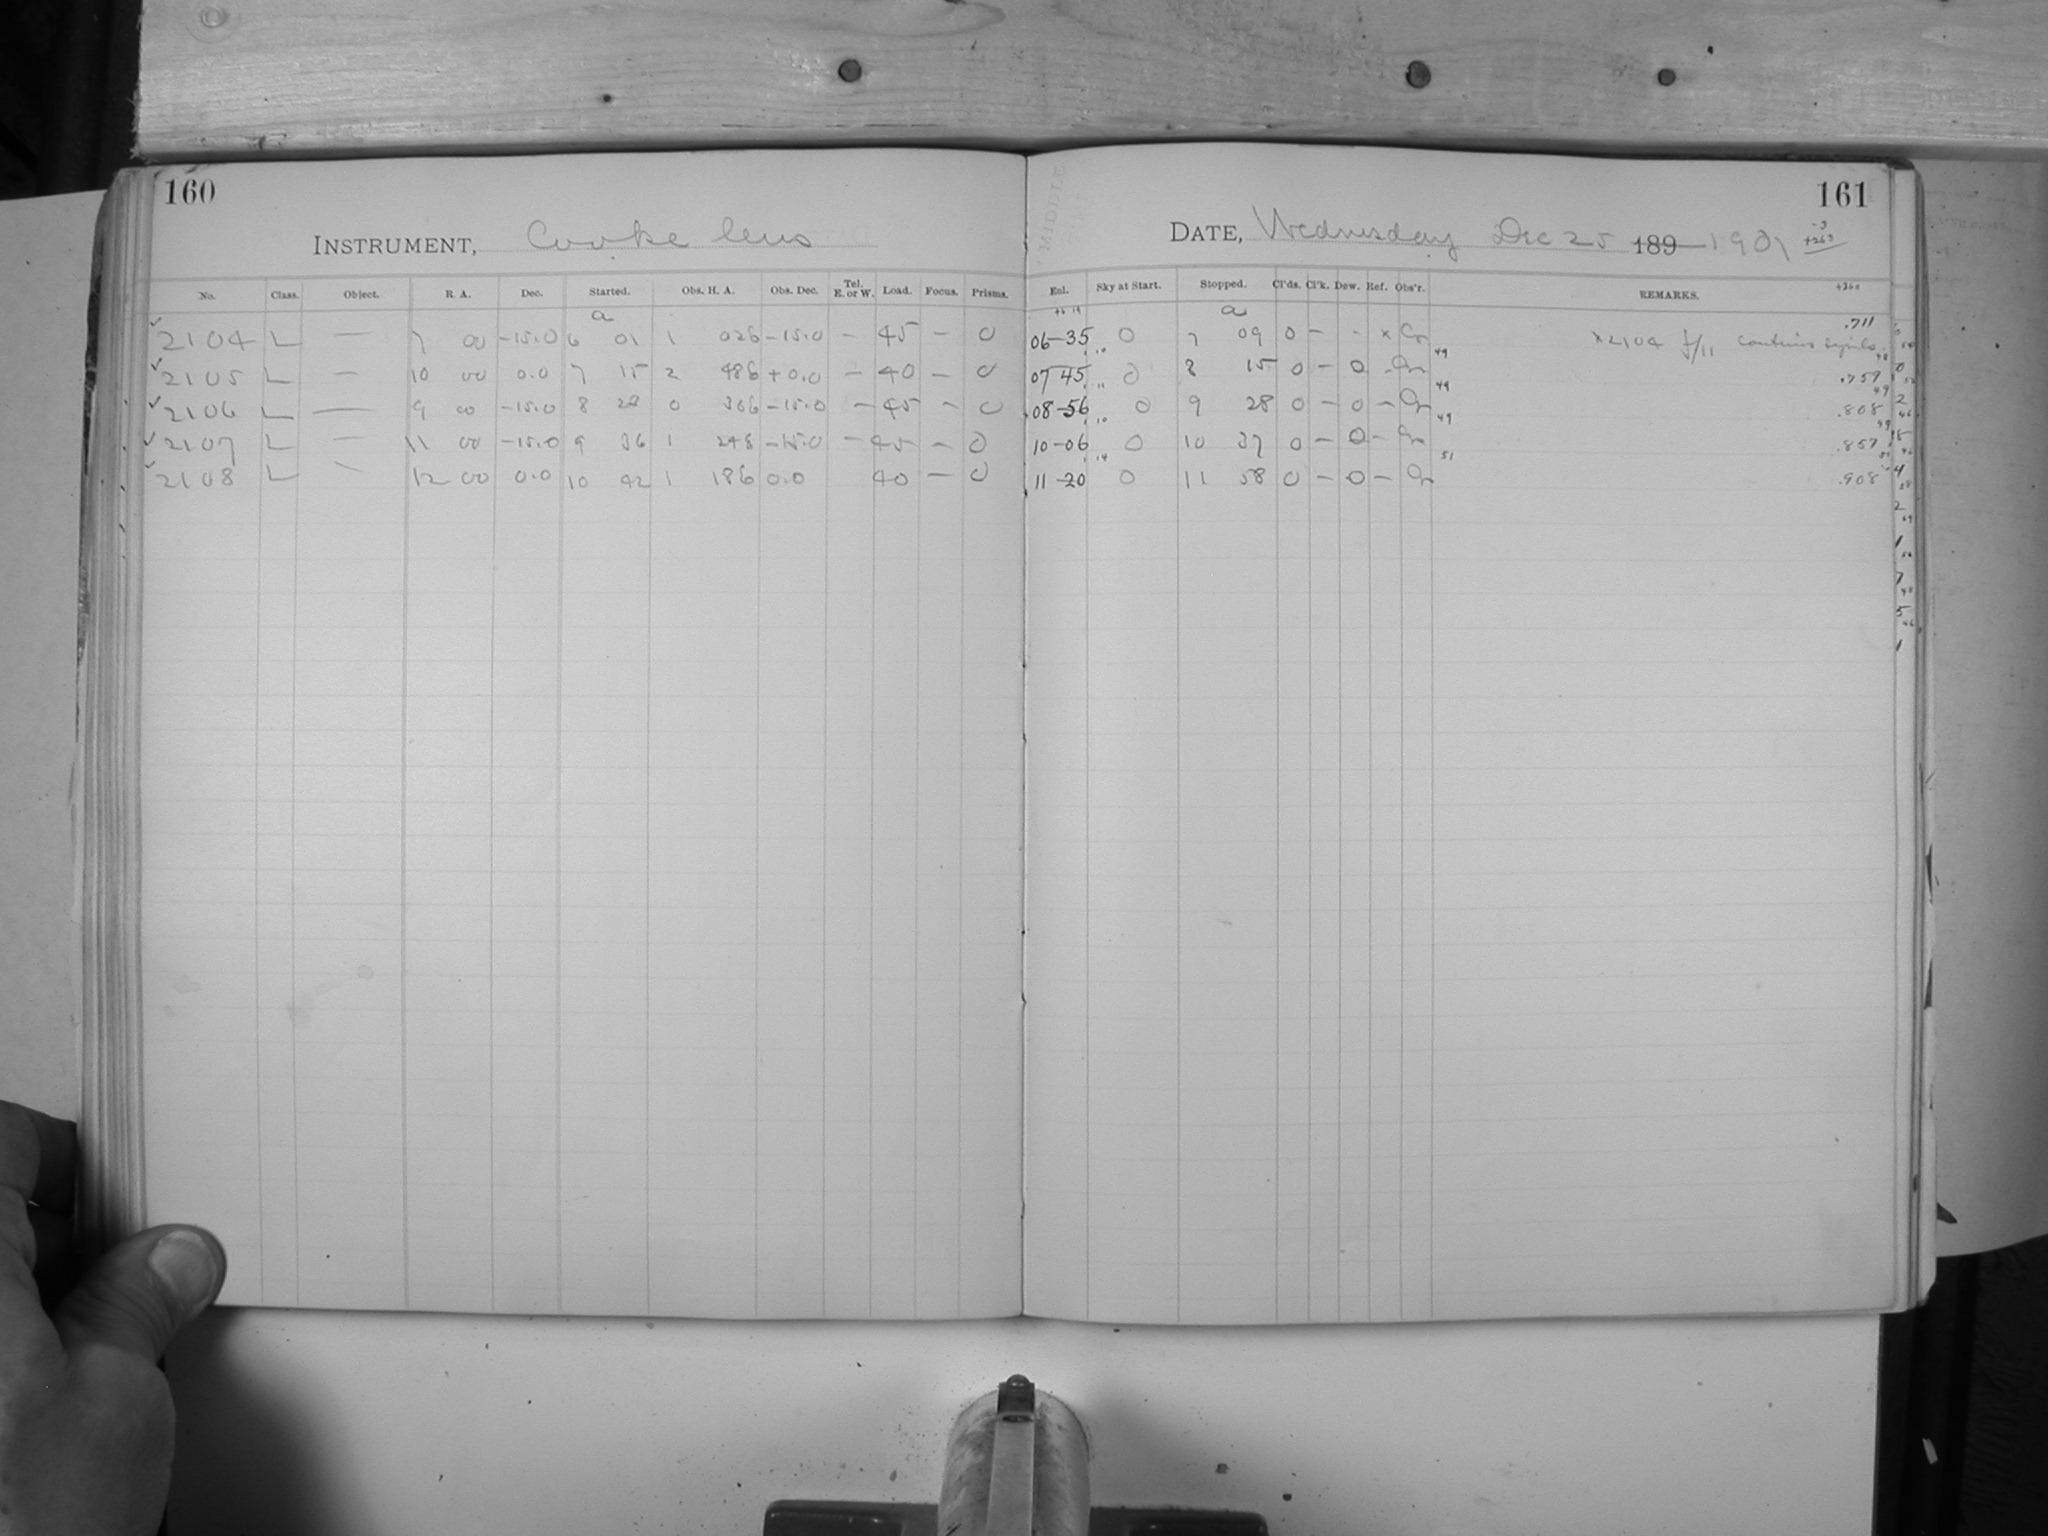 160
INSTRUMENT, Cooke lens
No. Class. Object. R. A. Dec. Started. Obs. H. A. Obs. Dec. Tel. E. or W. Load. Focus. Prisms.
a
✓ 2104 L — 7 00 -15.0 6 01 1 026 -15.0 — 45 — 0
✓ 2105 L — 10 00 0.0 7 15 2 486 +0.0 — 40 — 0
✓ 2106 L — 9 00 -15.0 8 23 0 366 -15.0 — 45 — 0
✓ 2107 L — 11 00 -15.0 9 36 1 248 -15.0 — 45 — 0
✓ 2108 L — 12 00 0.0 10 42 1 186 0.0 40 — 0
161
DATE, Wednesday Dec 25 189 1901
-3
+263
Enl. Sky at Start. Stopped. Cl'ds. Cl'k. Dew. Ref. Obs'r. REMARKS.
+260
a
06-35 0 7 09 0 — - x x2104 f/11 contains .711
07 45 0 8 15 0 — 0 - 49 .759
08-56 0 9 28 0 — 0 — 49 .808
10-06 0 10 37 0 — 0 — .857
11-20 0 11 58 0 — 0 — 51 .908